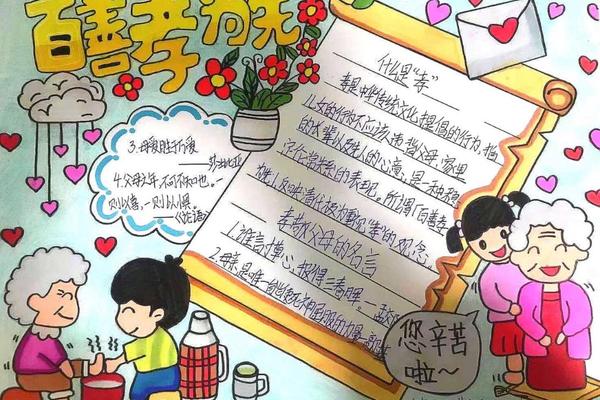 百善孝为先
什么是“孝”
孝是中华传统文化提倡的行为,指
儿女的行为不应该违背父母、家里
的长辈以及先人的心意,是一种稳定
伦常关系的表现。所谓“百善孝
为先”反映
“孝”的观念。
孝敬父母的名言
1.谁言寸草心,报得三春晖。
孟郊
2.母亲
3.母爱胜于
4.父母之年,不可不知也。一
则以喜,一则以惧。
《论语》
您辛苦
啦~